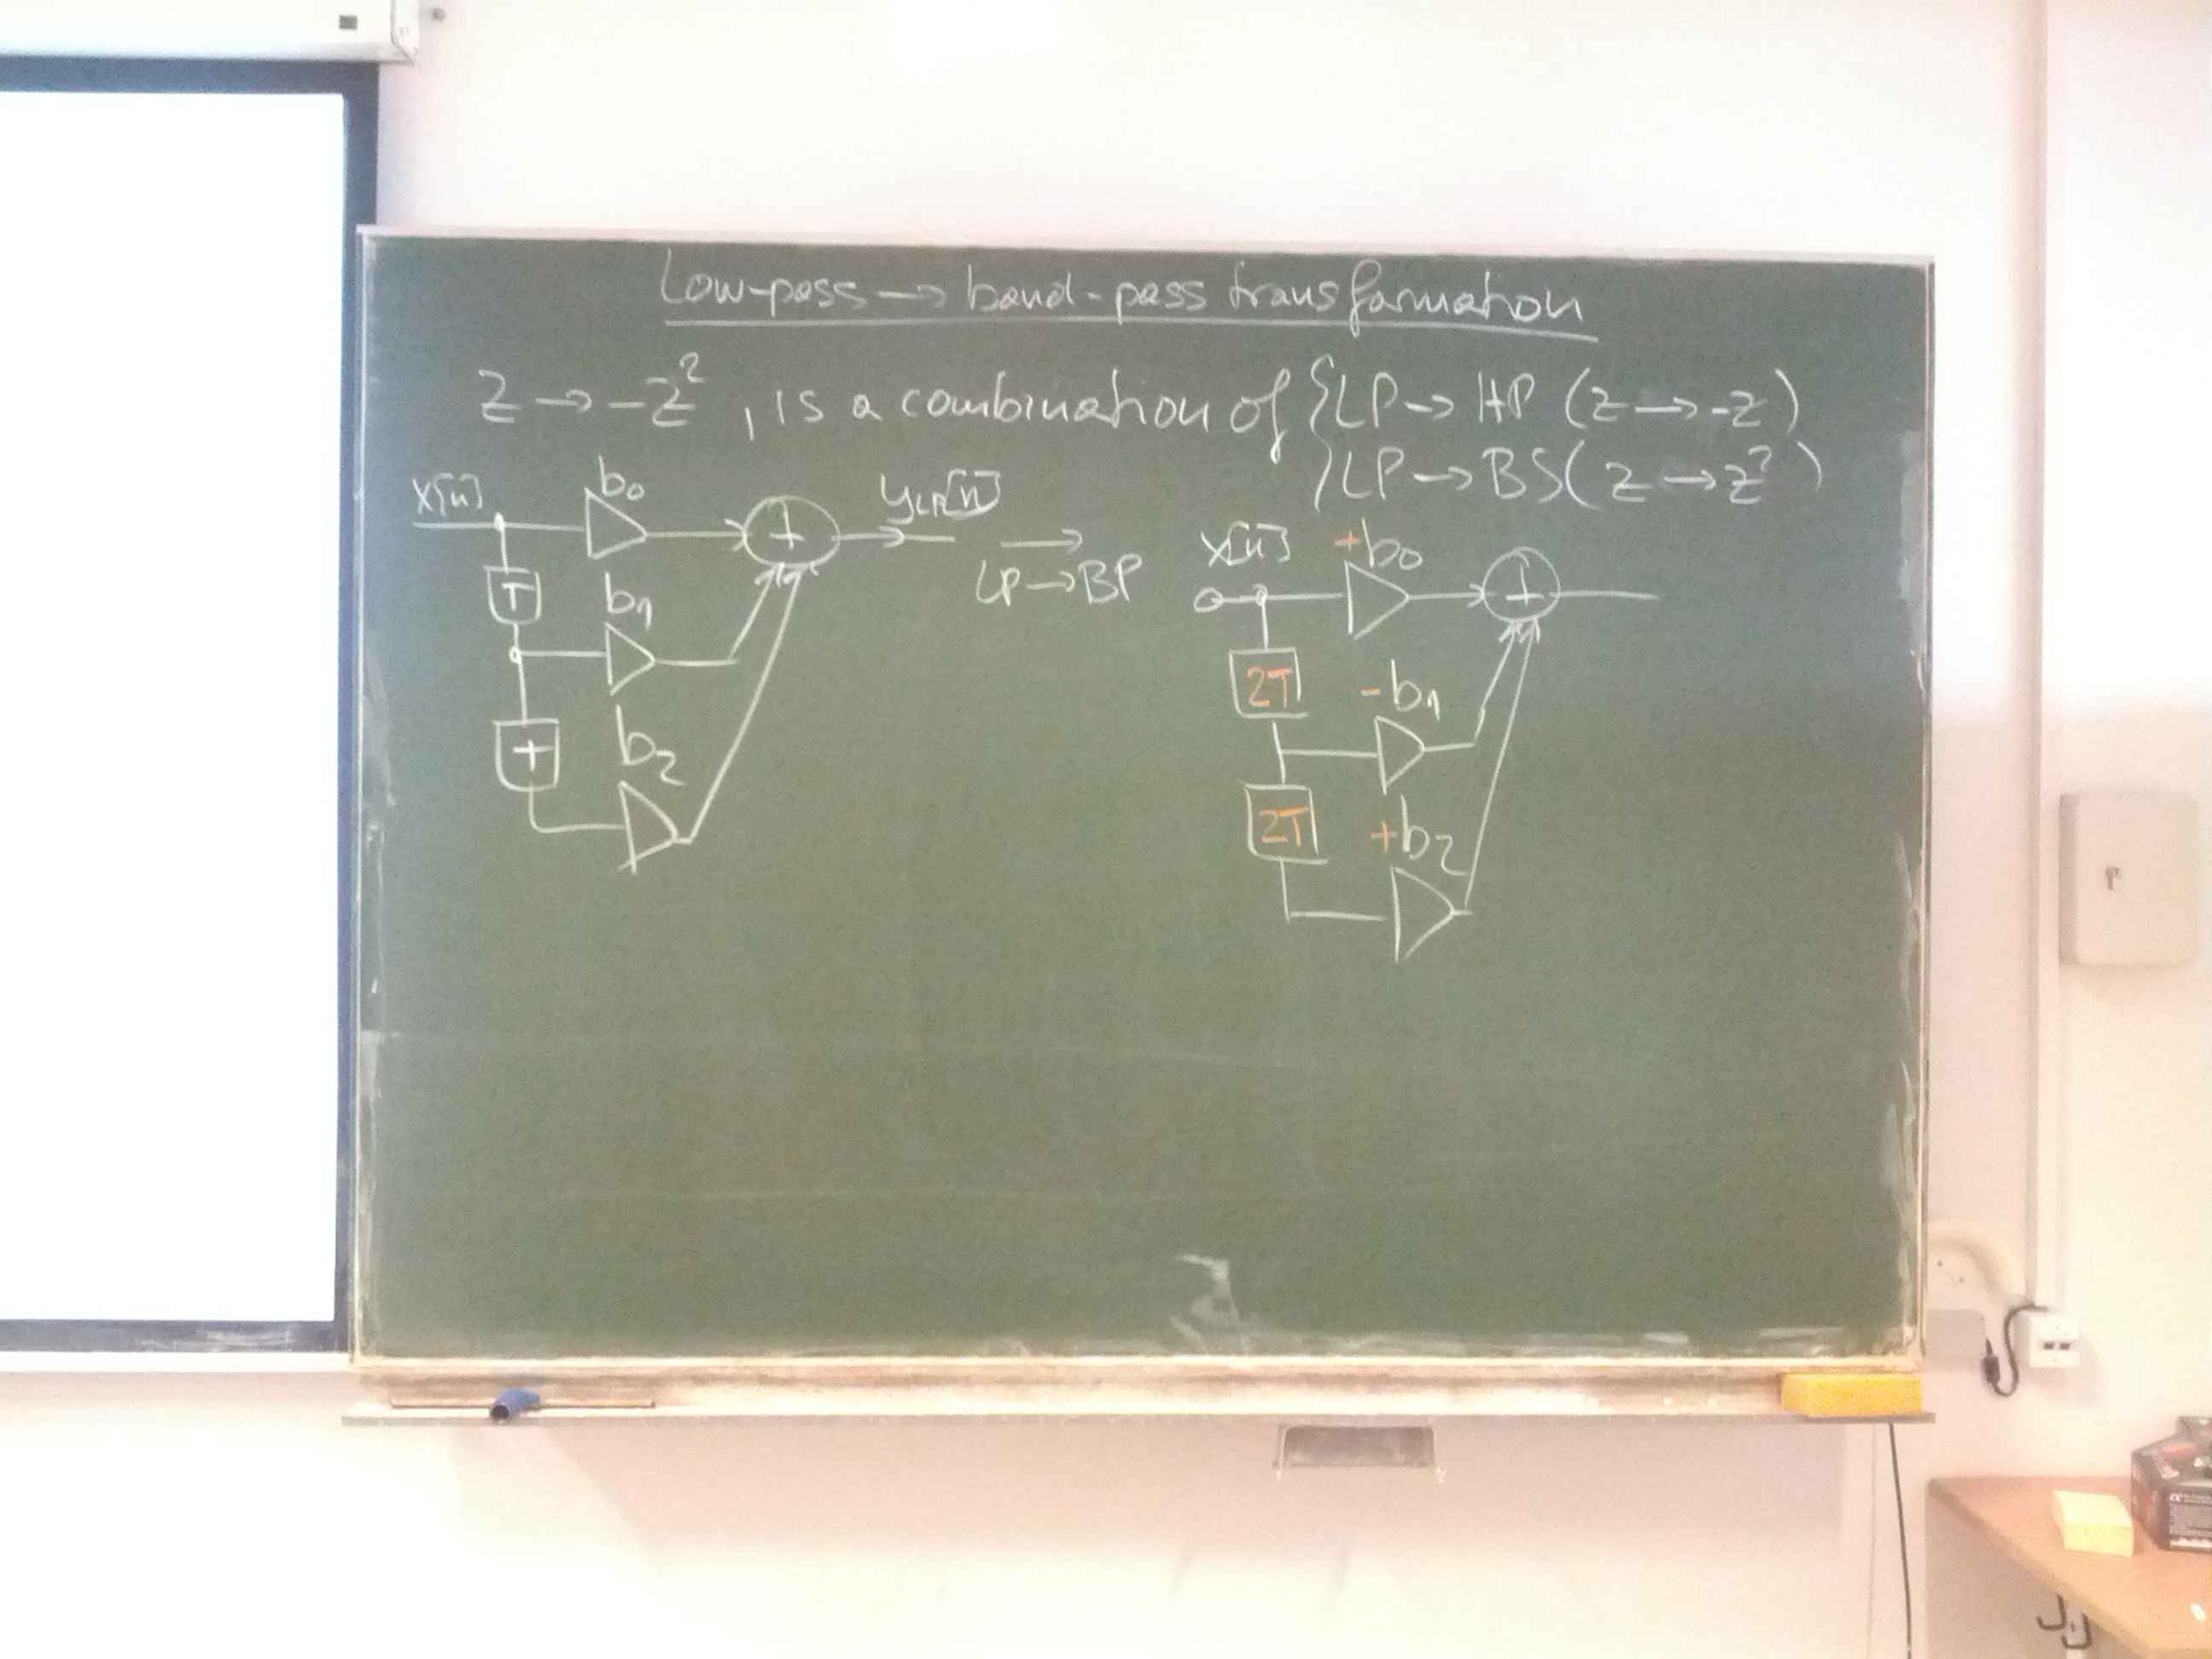 Low-pass → band-pass transformation
z → -z², is a combination of { LP → HP (z → -z)
{ LP → BS (z → z²)
x[n] b₀ + y_LP[n]
T b₁
T b₂
→
LP → BP
x[n] +b₀ +
2T -b₁
2T +b₂